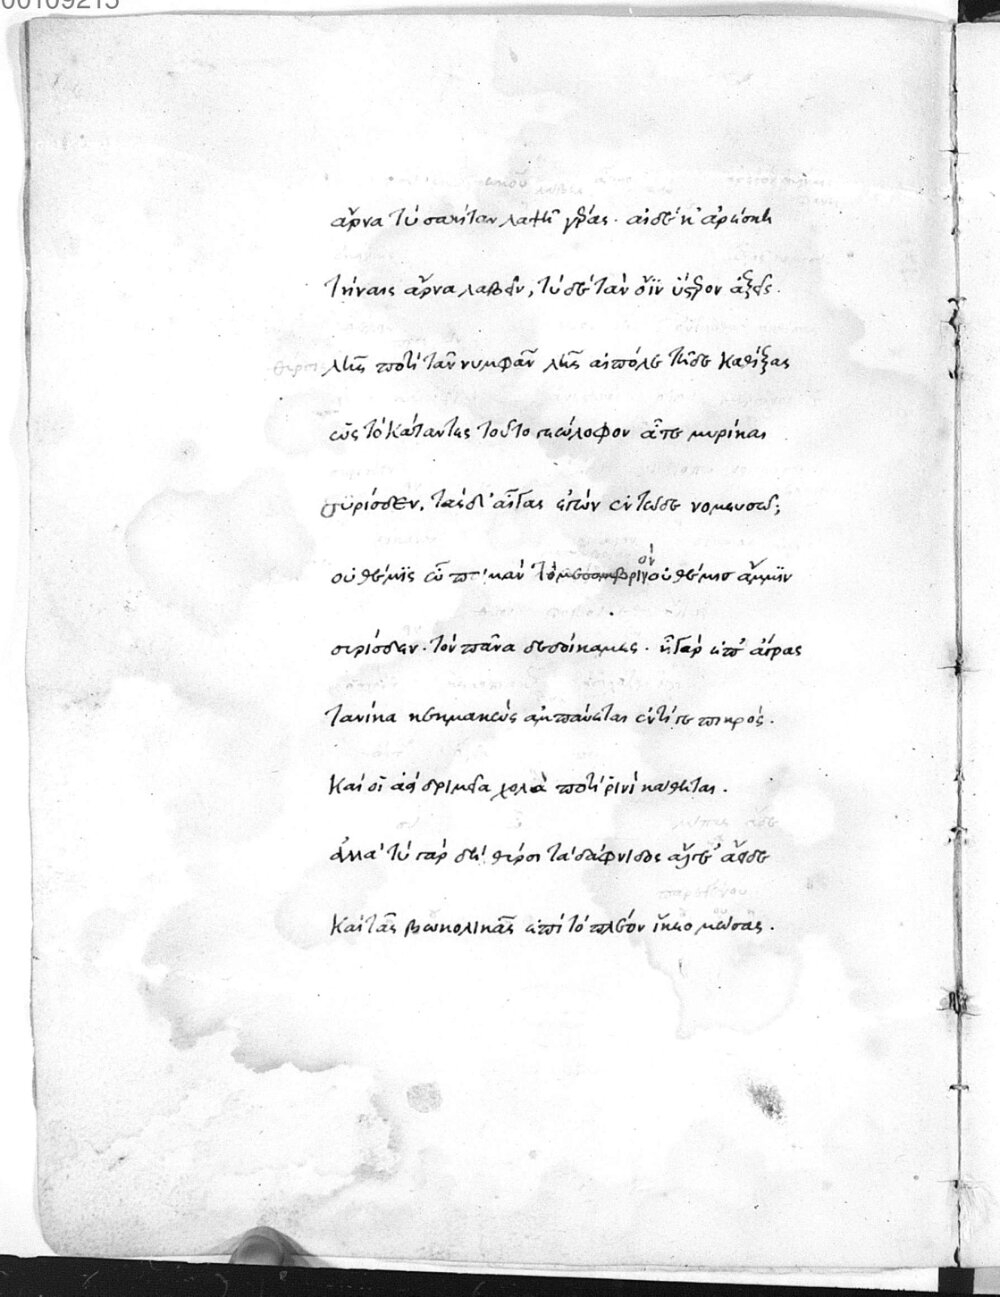 00109215
ἄρνα τὺ σακίταν λαψῆ γέρας. αἰδέ κ' ἀρέσκη
τήναις ἄρνα λαβεῖν, τὺ δὲ τὰν ὄϊν ὕστερον ἀξεῖς.
θύρσι λῆς ποτὶ τᾶν νυμφᾶν λῆς αἰπόλε τῆδε καθίξας
ὡς τὸ κάταντες τοῦτο γεώλοφον ἇτε μυρίκαι
συρίσδεν, τὰς δ' αἶγας ἐγὼν ἐν τῶδε νομευσῶ;
οὐ θέμις ὦ ποιμὰν τὸ μεσαμβρινὸν οὐ θέμισ ἄμμιν
συρίσδεν. τὸν πᾶνα δεδοίκαμες. ἦ γὰρ ἀπ' ἄγρας
τανίκα κεκμακὼς ἀμπαύεται ἐντί γε πικρός.
καί οἱ ἀεὶ δριμεῖα χολὰ ποτὶ ῥινὶ κάθηται.
ἀλλὰ τὺ γὰρ δὴ θύρσι τὰ δάφνιδος ἄλγε' ἄειδε
καὶ τᾶς βωκολικᾶς ἐπὶ τὸ πλέον ἵκεο μώσας.